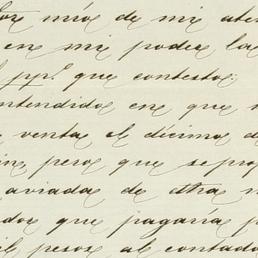 mios de mi aten
en mi poder la
pp.º que contesto;
ntendidos en que
venta al décimo d
pero que se pro
aviadas de otra
dos que pagaría p
pesos al contado